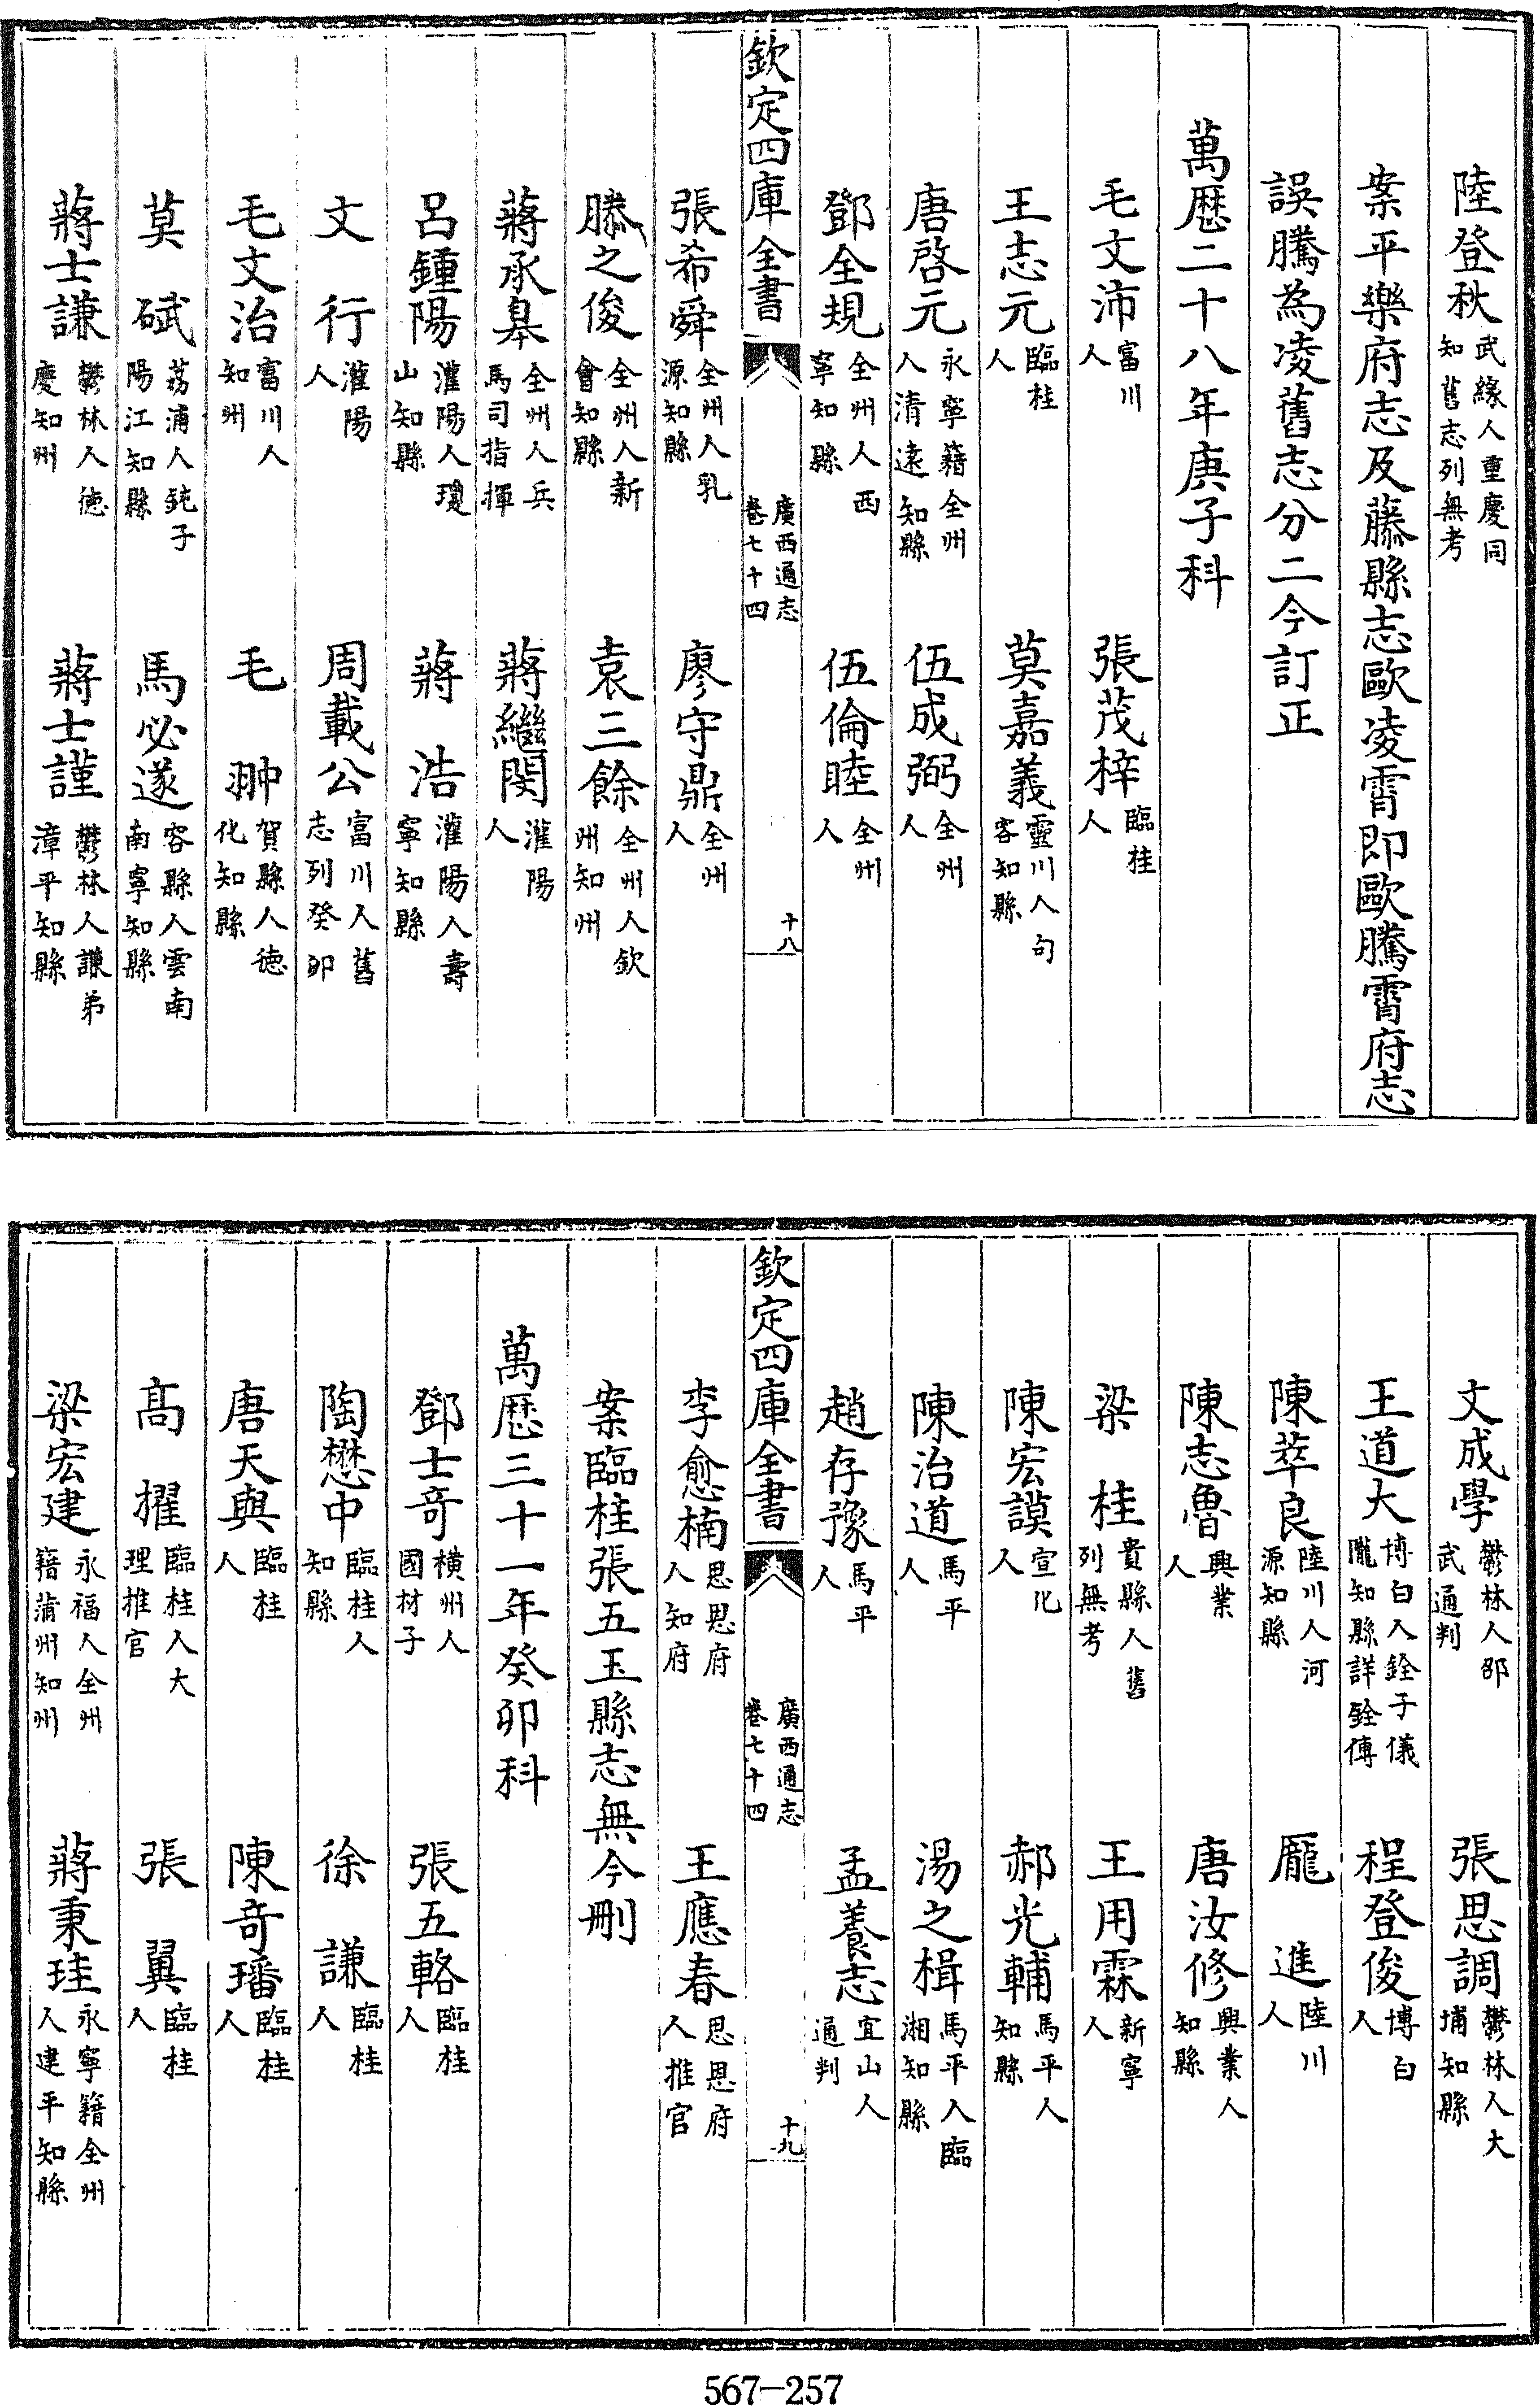 陸登秋武緣人重慶同知舊志列無考
案平樂府志及藤縣志歐凌霄即歐騰霄府志
誤騰為凌舊志分二今訂正
萬厯二十八年庚子科
毛文沛富川人 張茂梓臨桂人
王志元臨桂人 莫嘉義靈川人句容知縣
唐啓元永寧籍全州人清遠知縣 伍成弼全州人
鄧全規全州人西寧知縣 伍倫睦全州人
欽定四庫全書 廣西通志卷七十四 十八
張希舜全州人乳源知縣 廖守鼎全州人
滕之俊全州人新會知縣 袁三餘全州人欽州知州
蔣承臯全州人兵馬司指揮 蔣繼閔灌陽人
呂鍾陽灌陽人瓊山知縣 蔣浩灌陽人壽寧知縣
文行灌陽人 周載公富川人舊志列癸卯
毛文治富川人知州 毛翀賀縣人德化知縣
莫碔荔浦人鈍子陽江知縣 馬必遂容縣人雲南南寧知縣
蔣士謙鬱林人德慶知州 蔣士謹鬱林人謙弟漳平知縣
文成學鬱林人邵武通判 張思調鬱林人大埔知縣
王道大博白人銓子儀隴知縣詳銓傳 程登俊博白人
陳萃良陸川人河源知縣 龎進陸川人
陳志魯興業人 唐汝修興業人知縣
梁桂貴縣人舊列無考 王用霖新寧人
陳宏謨宣化人 郝光輔馬平人知縣
陳治道馬平人 湯之楫馬平人臨湘知縣
趙存豫馬平人 孟養志宜山人通判
欽定四庫全書 廣西通志卷七十四 十九
李愈楠思恩府人知府 王應春思恩府人推官
案臨桂張五玉縣志無今刪
萬厯三十一年癸卯科
鄧士奇橫州人國材子 張五輅臨桂人
陶懋中臨桂人知縣 徐謙臨桂人
唐天與臨桂人 陳奇璠臨桂人
高擢臨桂人大理推官 張翼臨桂人
梁宏建永福人全州籍蒲州知州 蔣秉珪永寧籍全州人建平知縣
567-257